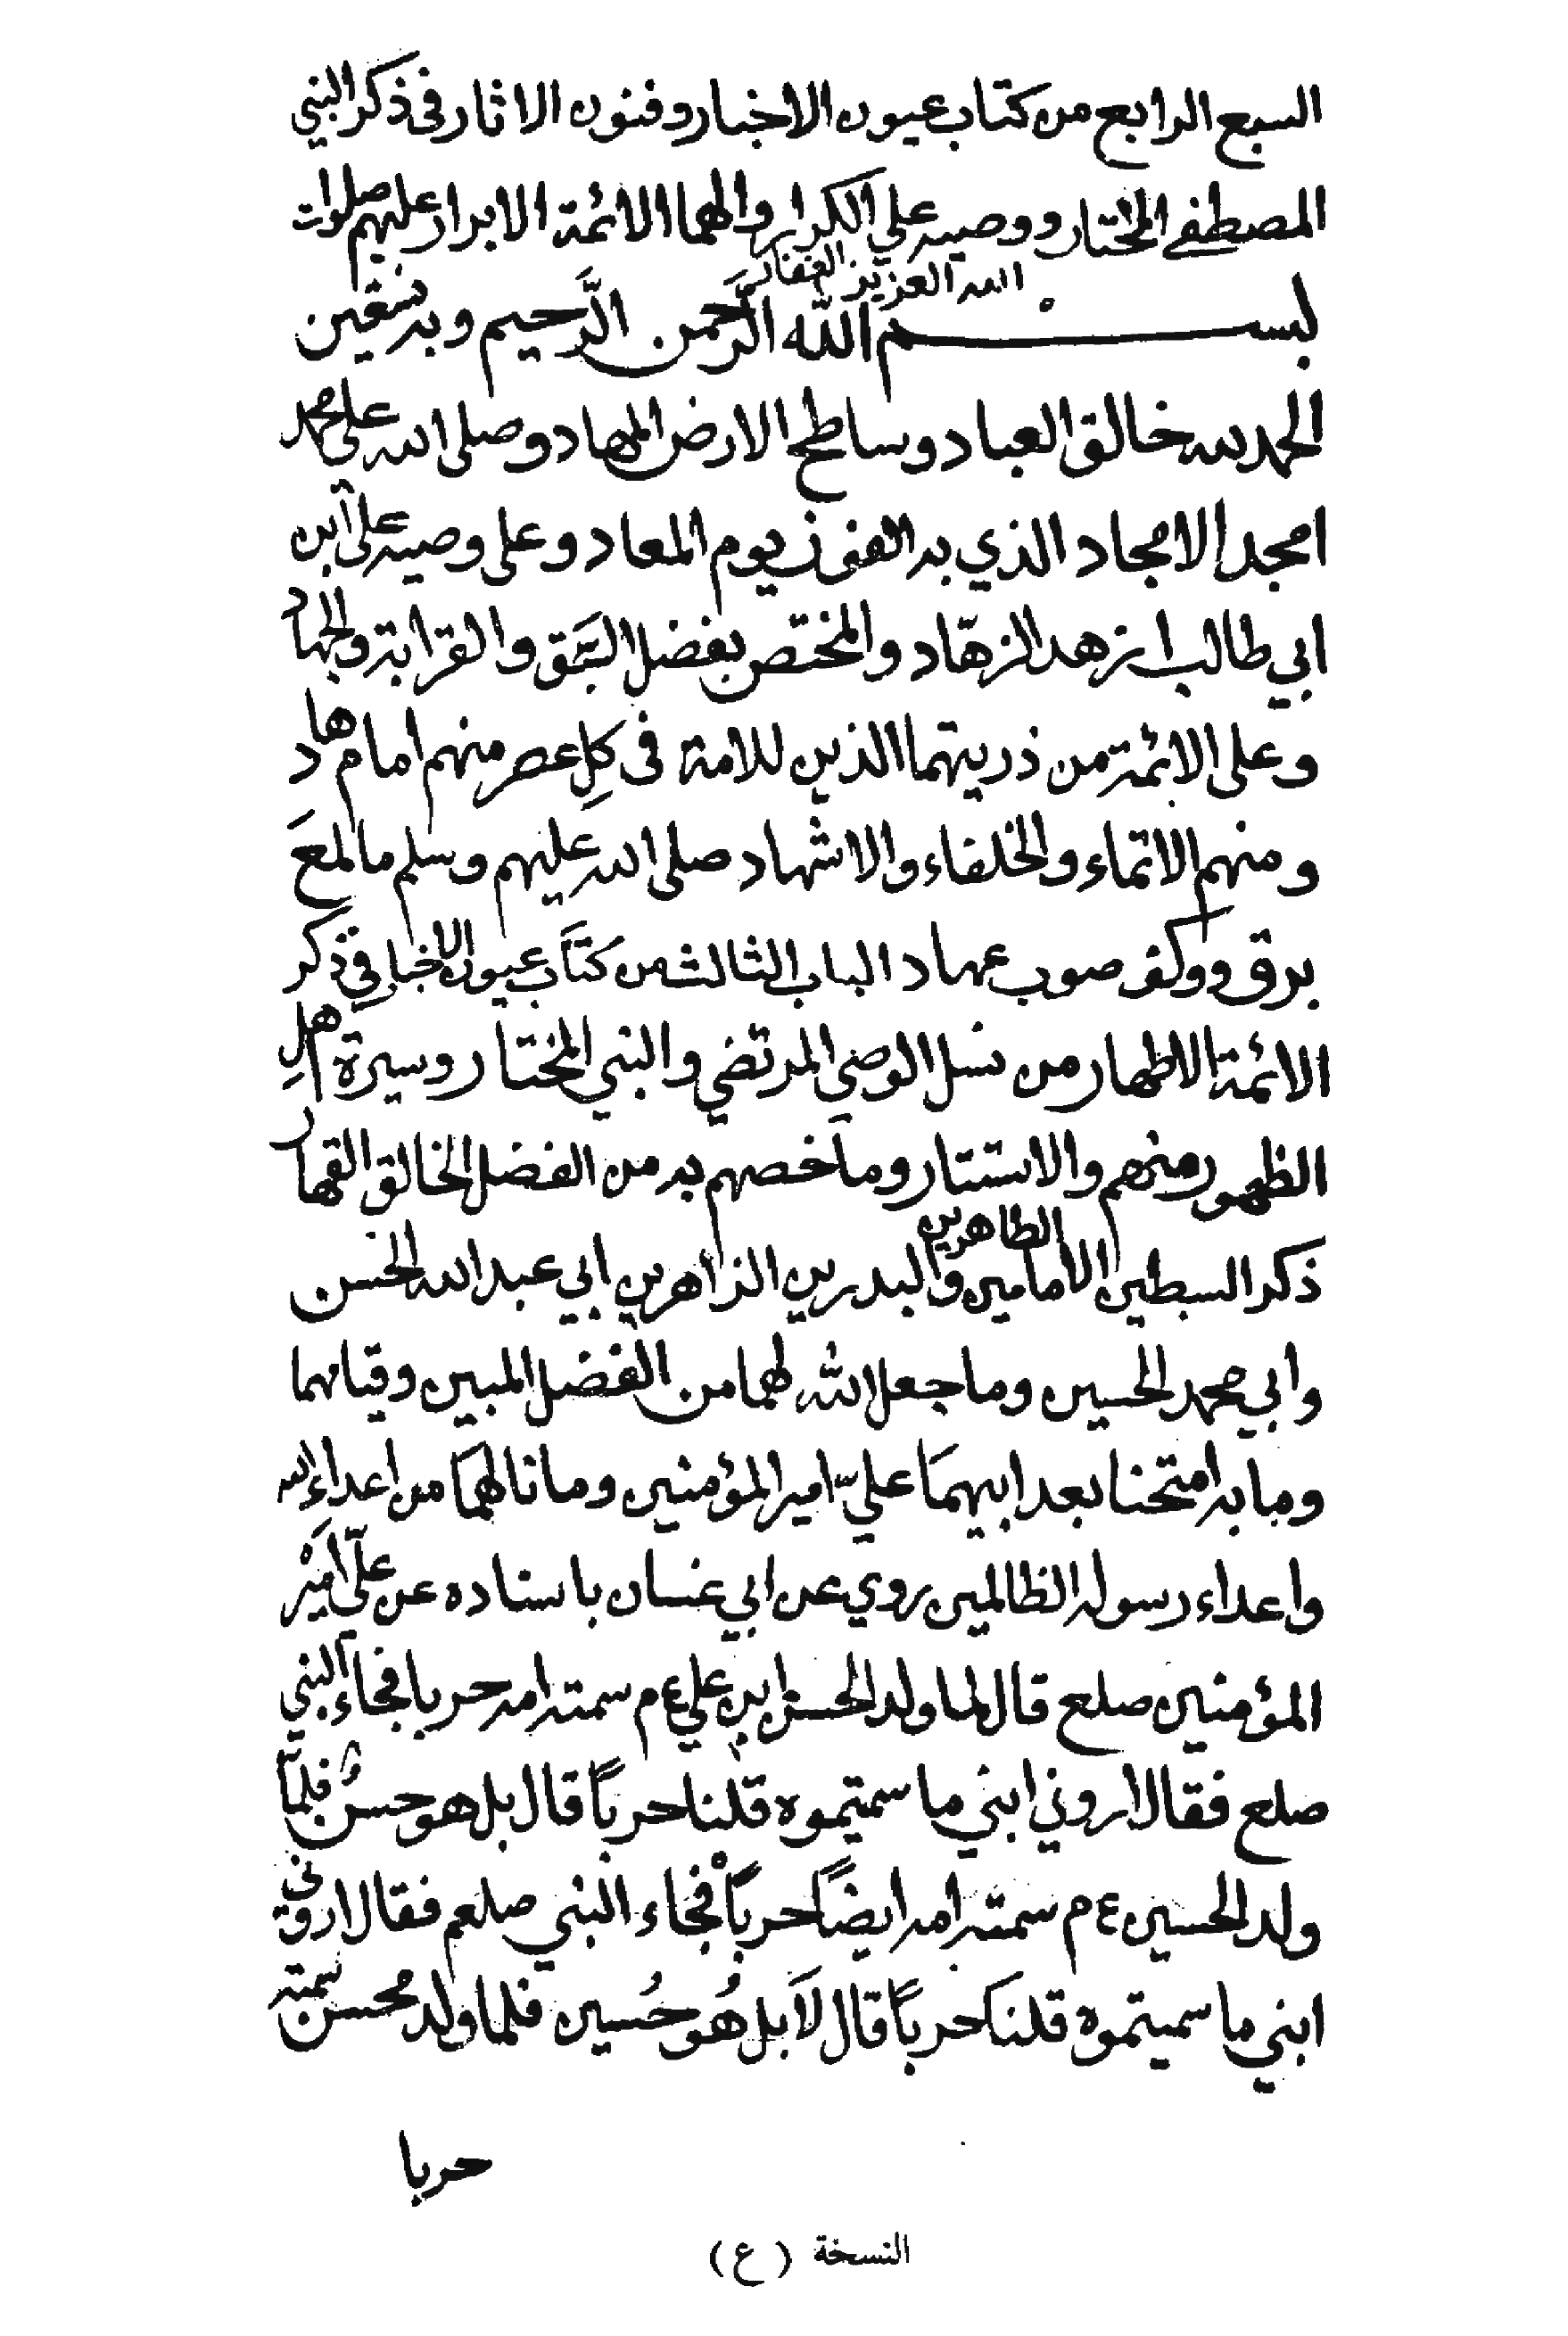 السبع الرابع من كتاب عيون الاخبار وفنون الاثار في ذكر النبي
المصطفى المختار ووصيه علي الكرار والهما الائمة الابرار عليهم صلوات
الله العزيز الغفار
بسم الله الرَّحمن الرَّحيم وبه نستعين
الحمد لله خالق العباد وساطح الارض المهاد وصلى الله على محمد
امجد الامجاد الذي به الفوز يوم المعاد وعلى وصيه علي ابن
ابي طالب ازهد الزهّاد والمختص بفضل السَّبق والقرابة والجهاد
وعلى الائمة من ذريتهما الذين للامة في كلِ عصر منهم امام هاد
ومنهم الاتماء والخلفاء والاشهاد صلى الله عليهم وسلم ما لمعَ
برق ووكف صوب عهاد الباب الثالث من كتاب عيون الاخبار في ذكر
الائمة الاطهار من نسل الوصي المرتضي والنبي المختار وسيرة اهلِ
الظهور منهم والاستتار وما خصهم به من الفضل الخالق القهار
ذكر السبطين الامامين الطاهرين والبدرين الزاهرين ابي عبد الله الحسن
وابي محمد الحسين وما جعل الله لهما من الفضل المبين وقيامهما
وما به امتحنا بعد ابيهمَا عليّ امير المؤمنين وما نالهمَا من اعداء الله
واعداء رسوله الظالمين روي عن ابي غسان باسناده عن عليّ اميْر
المؤمنين صلع قال لما ولد الحسن ابن علي ع م سمته امه حربا فجاء النبي
صلع فقال اروني ابني ما سميتموه قلنا حرباً قال بل هو حسنٌ فلمّا
ولد الحسين ع م سمته امه ايضاً حرباً فجاء النبي صلعم فقال اروني
ابني ما سميتموه قلنا حرباً قال لَا بل هُو حُسين فلما ولد محسن سمته
حربا
النسخة (ع)